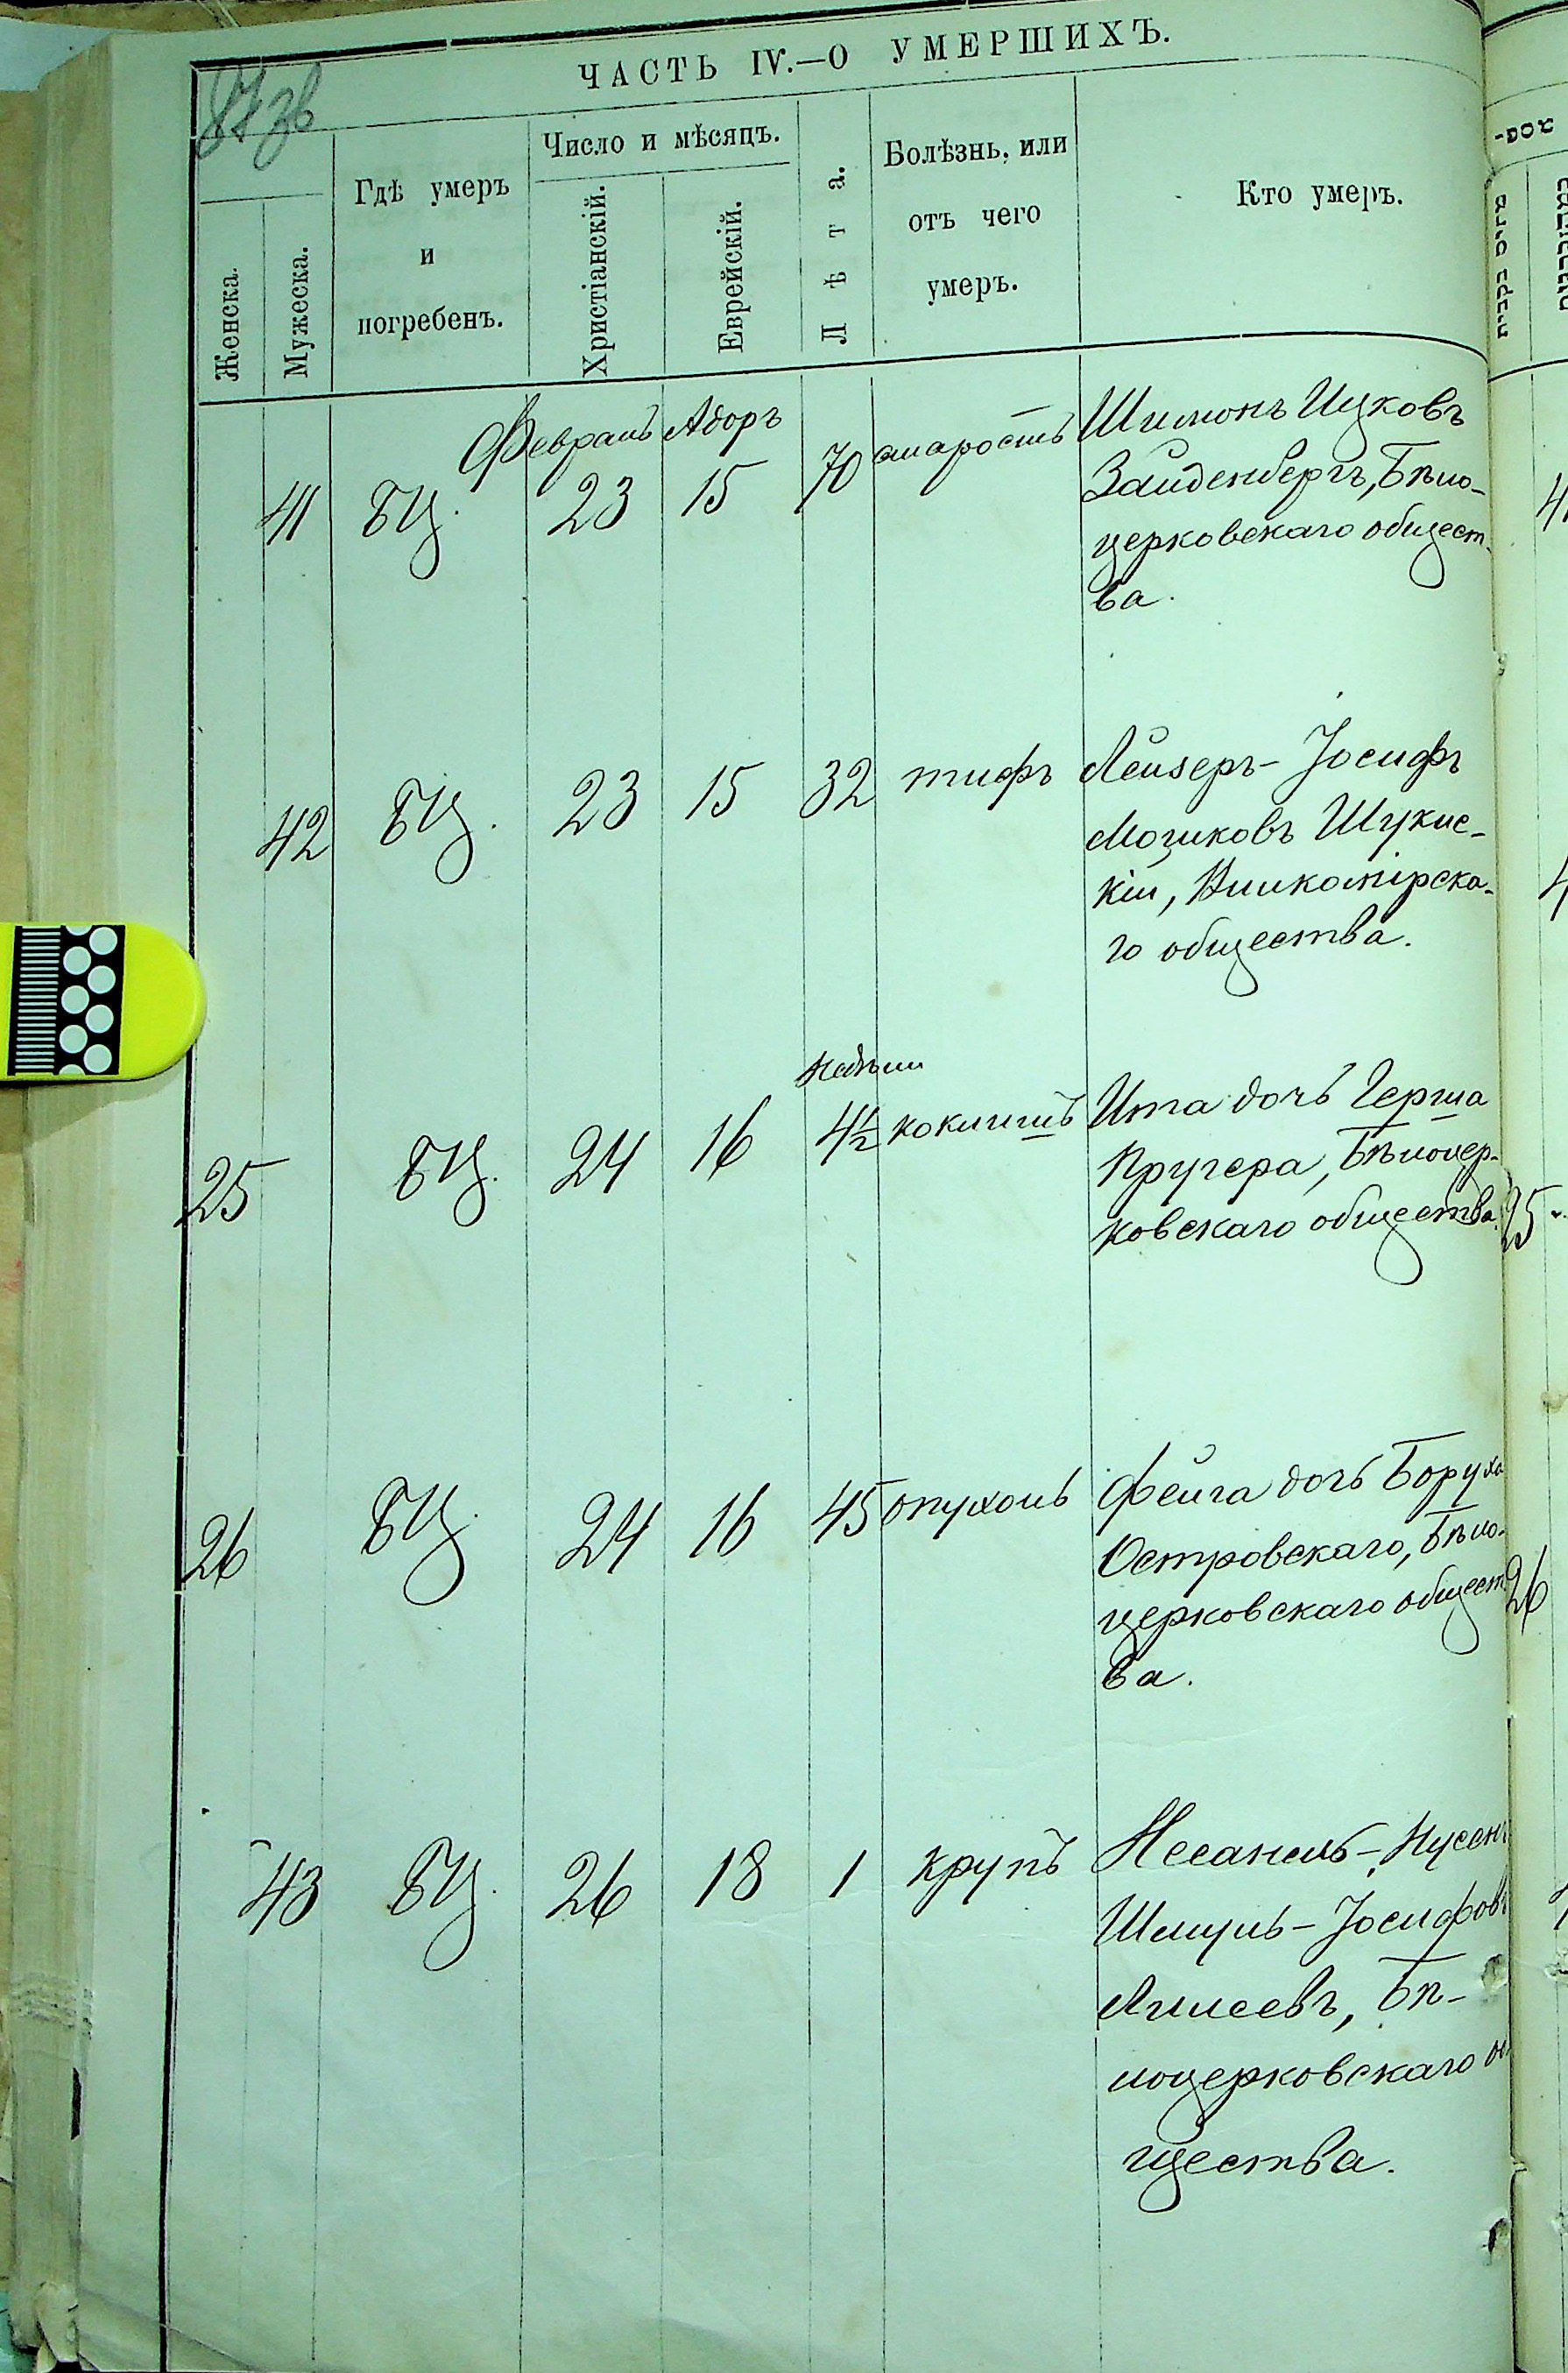 ЧАСТЬ IV.—О УМЕРШИХЪ.
87 зв
Женска.
Мужеска.
Гдѣ умеръ
и
погребенъ.
Число и мѣсяцъ.
Христіанскій.
Еврейскій.
Лѣта.
Болѣзнь, или
отъ чего
умеръ.
Кто умеръ.
Февраль Адоръ
41 БЦ. 23 15 70 старость Шимонъ Ицковъ
Зайденбергъ, Бѣло-
церковскаго общест-
ва.
42 БЦ. 23 15 32 тифъ Лейзеръ-Іосифъ
Мошковъ Шукис-
кій, Вилкомірска-
го общества.
недѣли
25 БЦ. 24 16 4½ коклишъ Ита дочь Герша
Кругера, Бѣлоцер-
ковскаго общества.
26 БЦ. 24 16 45 опухоль Фейга дочь Боруха
Островскаго, Бѣло-
церковскаго общест-
ва.
43 БЦ. 26 18 1 крупъ Несанель-Нусенъ
Шмуль-Іосифовъ
Бѣ-
лоцерковскаго об
щества.
25
26